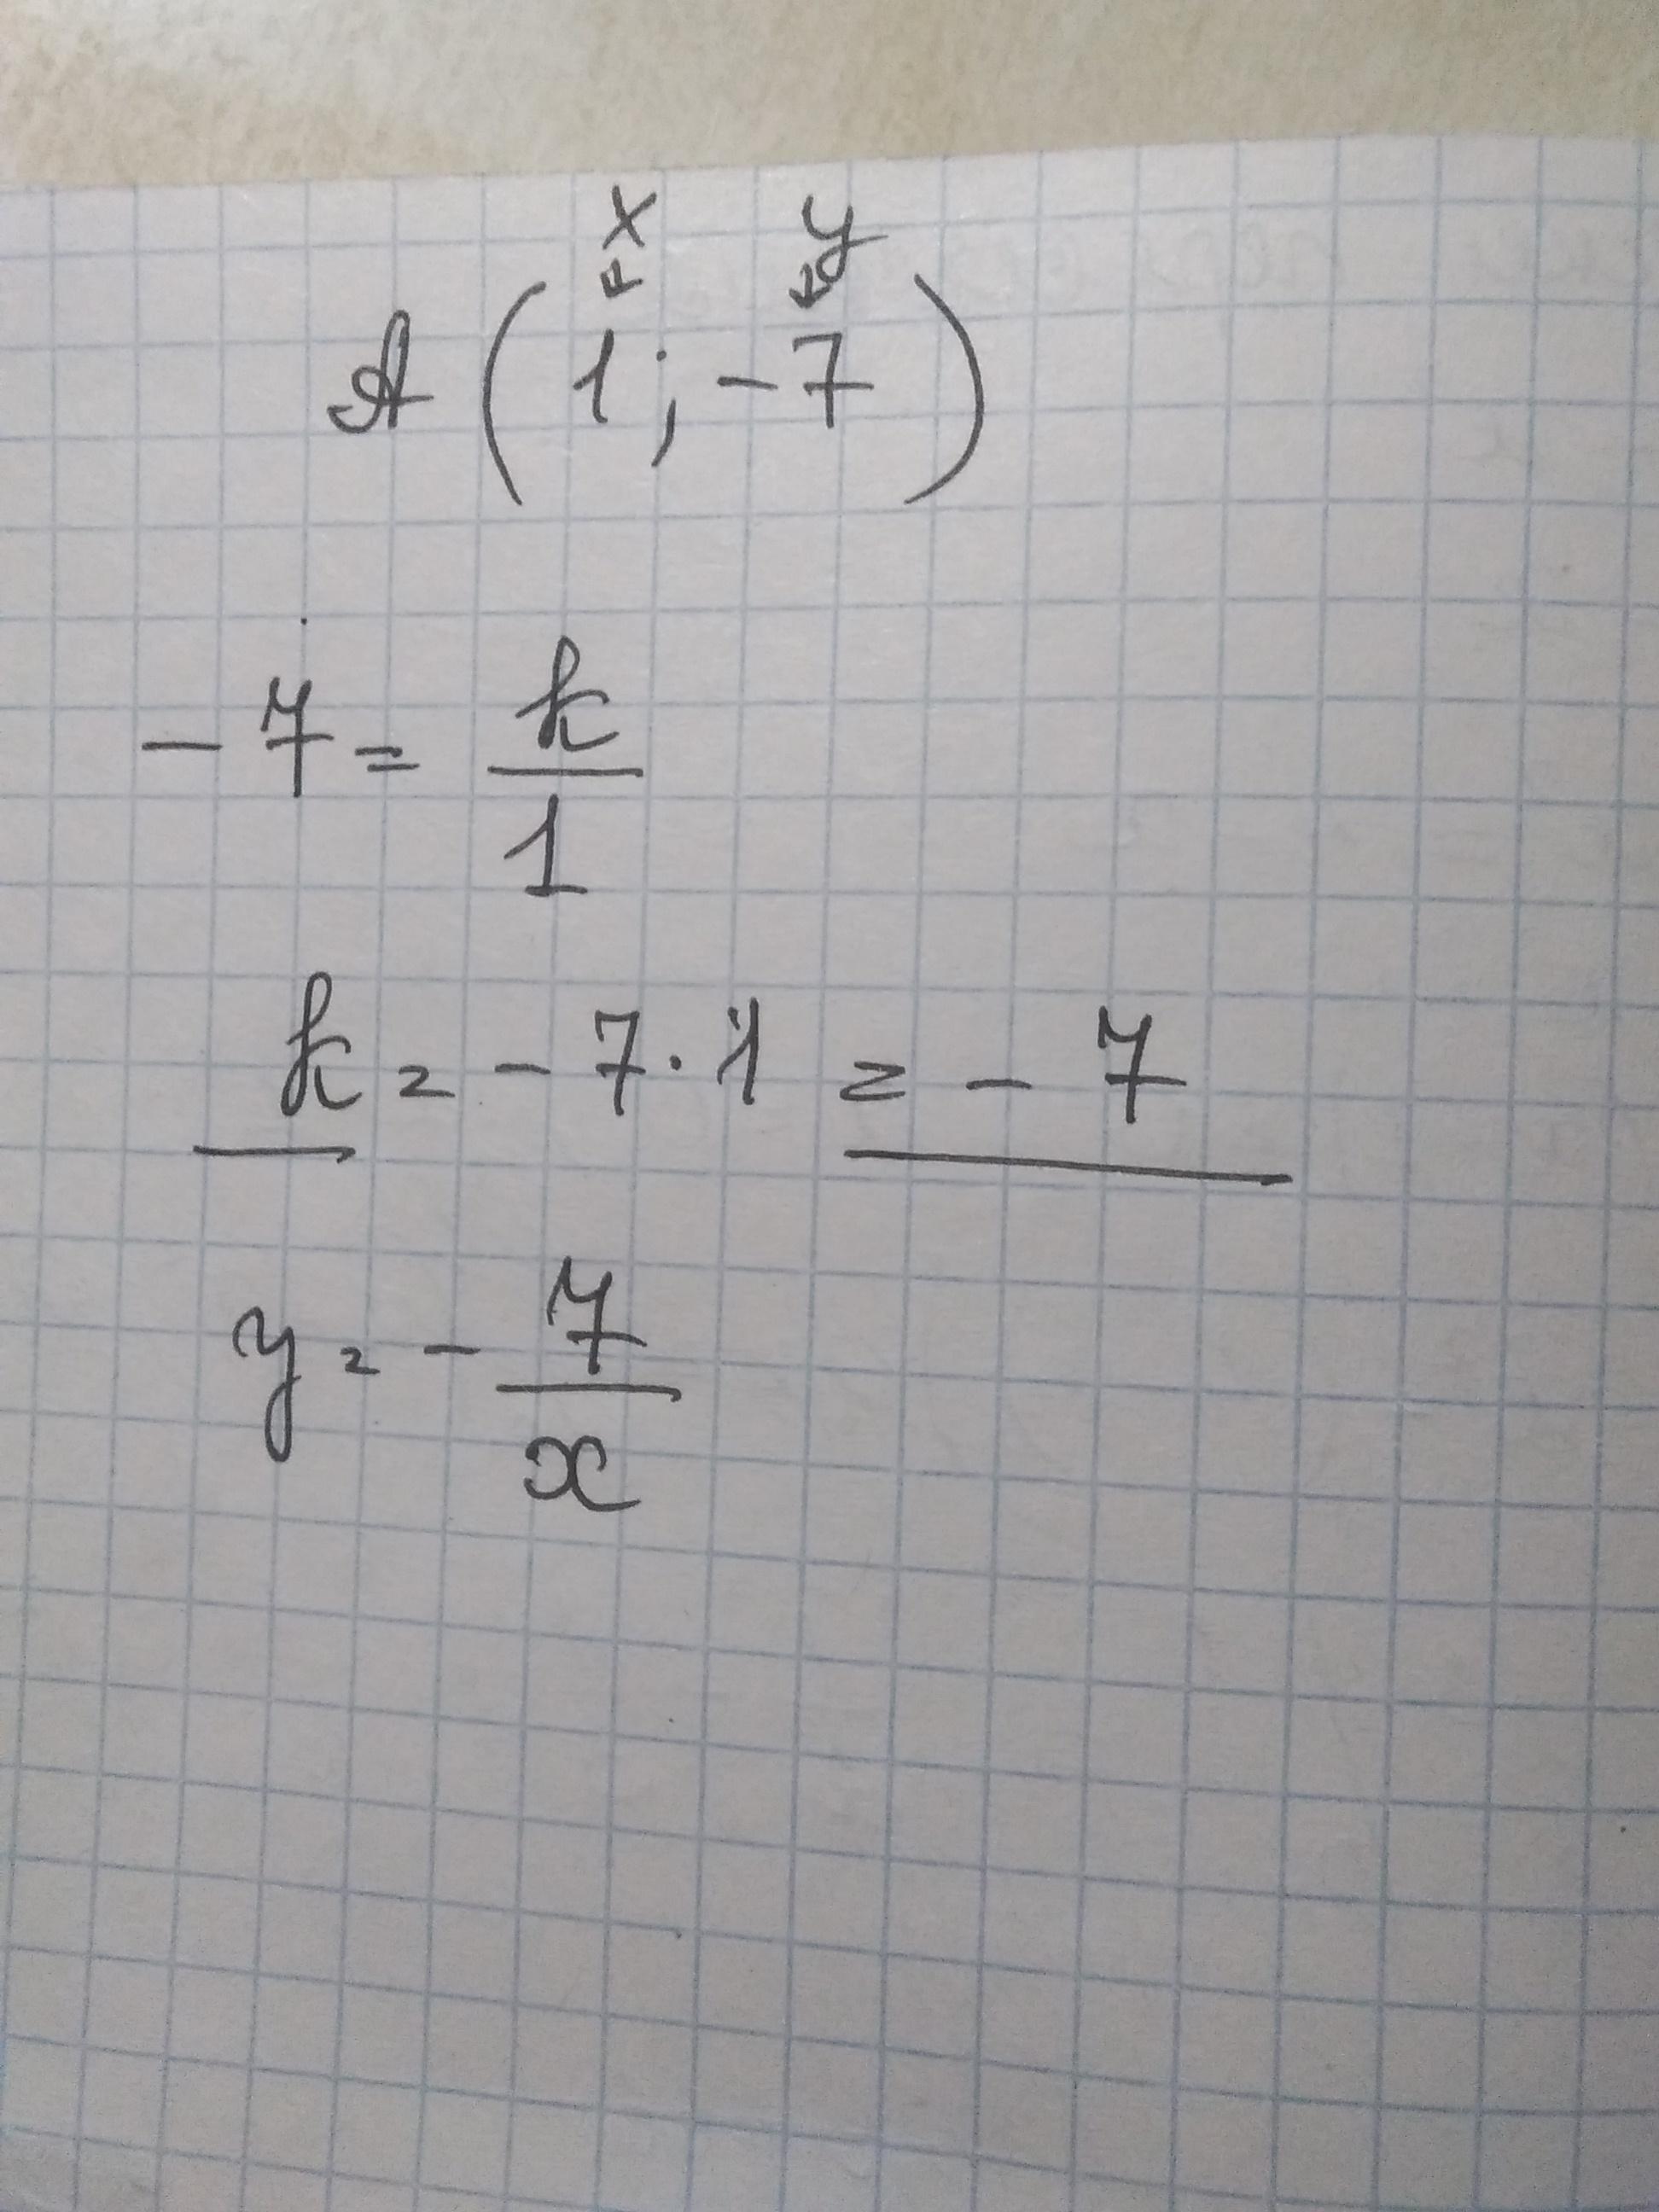 x y
A (1; -7)
-7 = k/1
k = -7 · 1 = -7
y = - 7/x